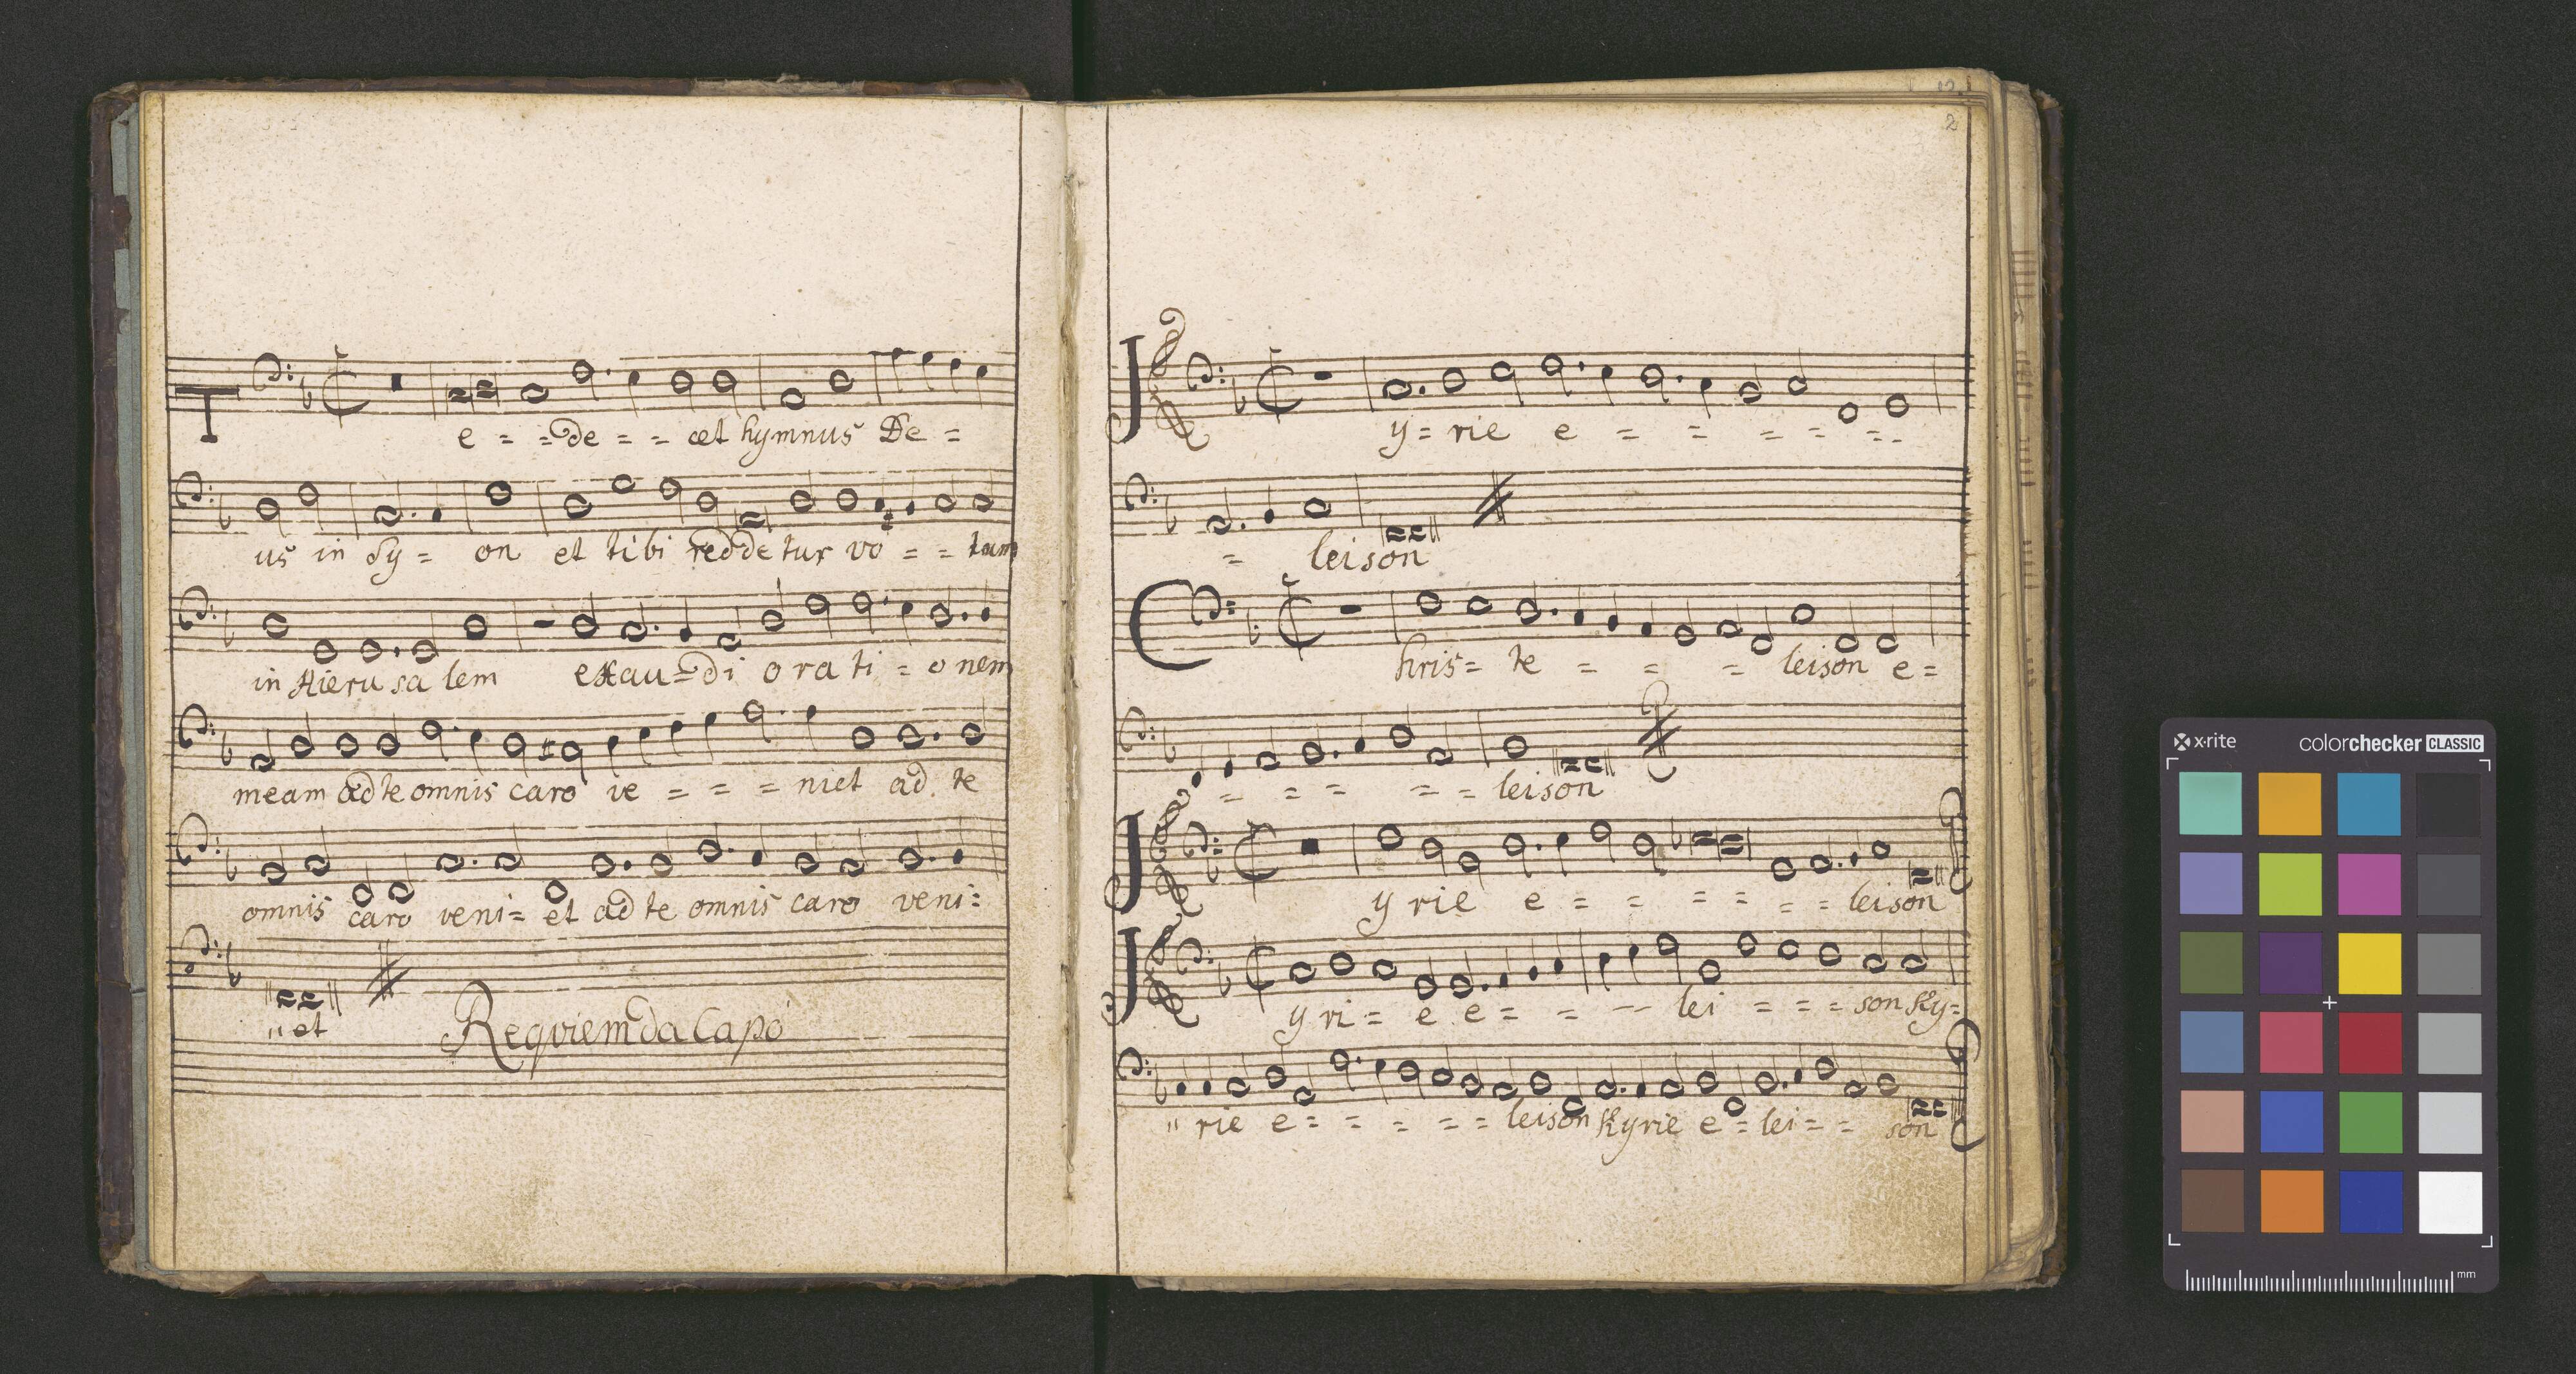 Te = = de = = cet hymnus De =
us in Sy = on et tibi reddetur vo = = tum
in Hieru sa lem exau = di o ra ti = o nem
meam ad te omnis caro ve = = = niet ad te
omnis caro veni = et ad te omnis caro veni =
" et
Reqviem da Capo
12
2
Ky = rie e = = = = = =
= leison
Chris = te = = = leison e =
= = = = = leison
Ky rie e = = = = = = leison
Ky ri = e e = = - lei = = = son Ky =
" rie e = = = = = leison Kyrie e = lei = = son
x·rite
colorchecker CLASSIC
mm